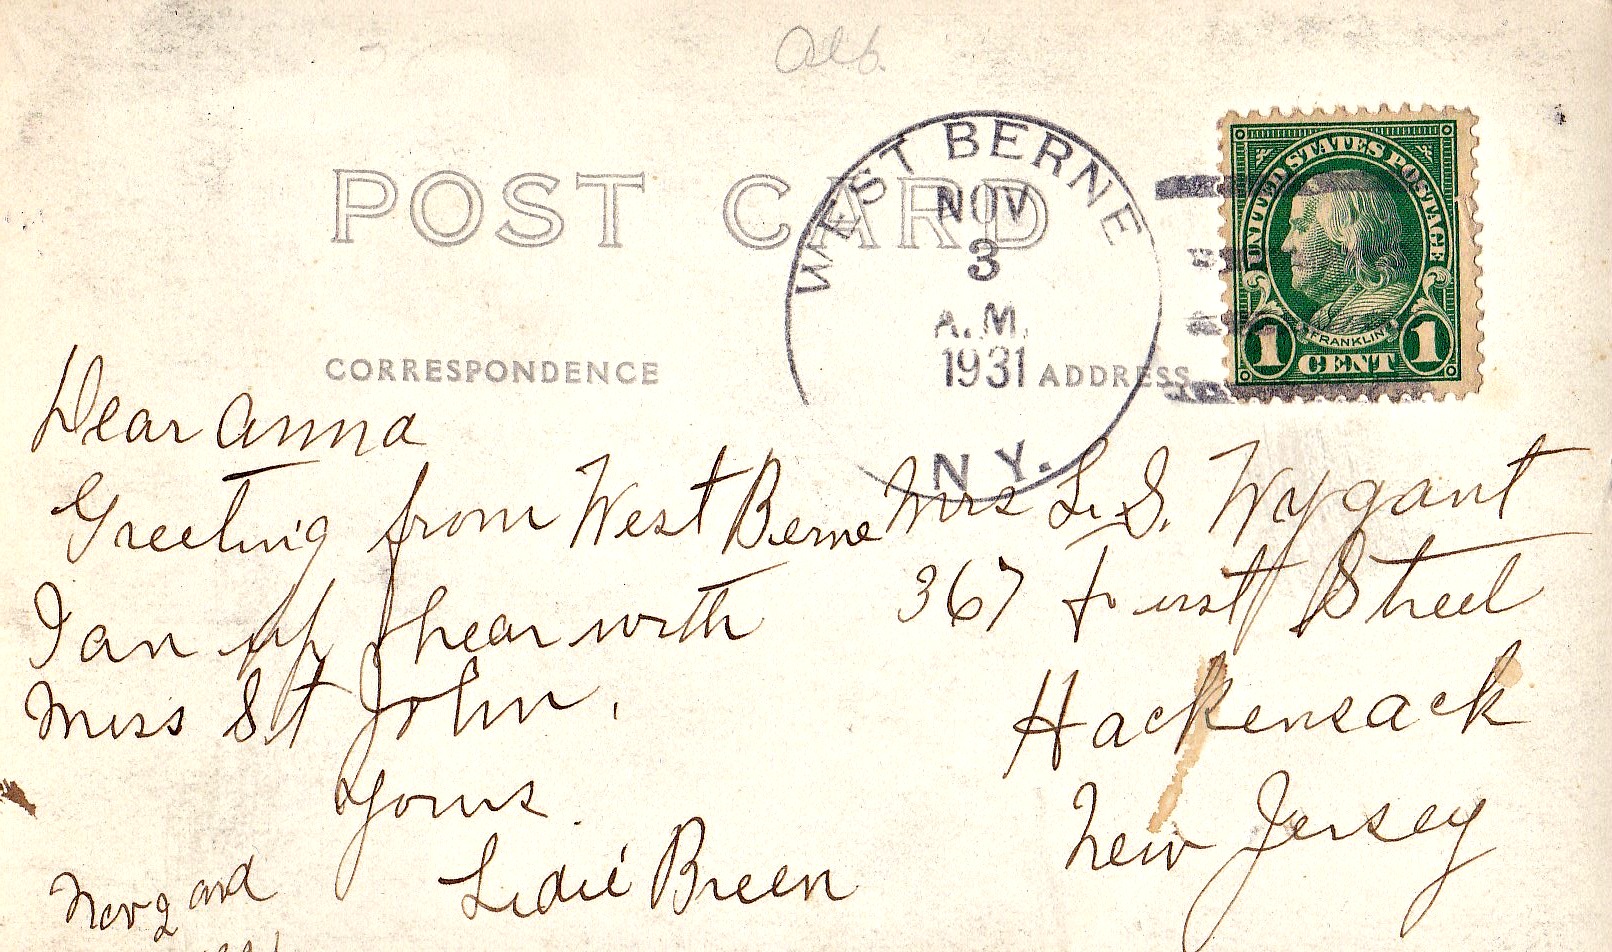 Alb.
POST CARD
WEST BERNE
NOV
3
A.M.
1931
N Y.
UNITED STATES POSTAGE
FRANKLIN
1 CENT 1
CORRESPONDENCE
ADDRESS
Dear Anna
Greeting from West Berne
I an up hear with
Miss St John,
Yours.
Lidie Breen
Nov 2 ond
Mrs L. S. Wygant
367 First Street
Hackensack
New Jersey